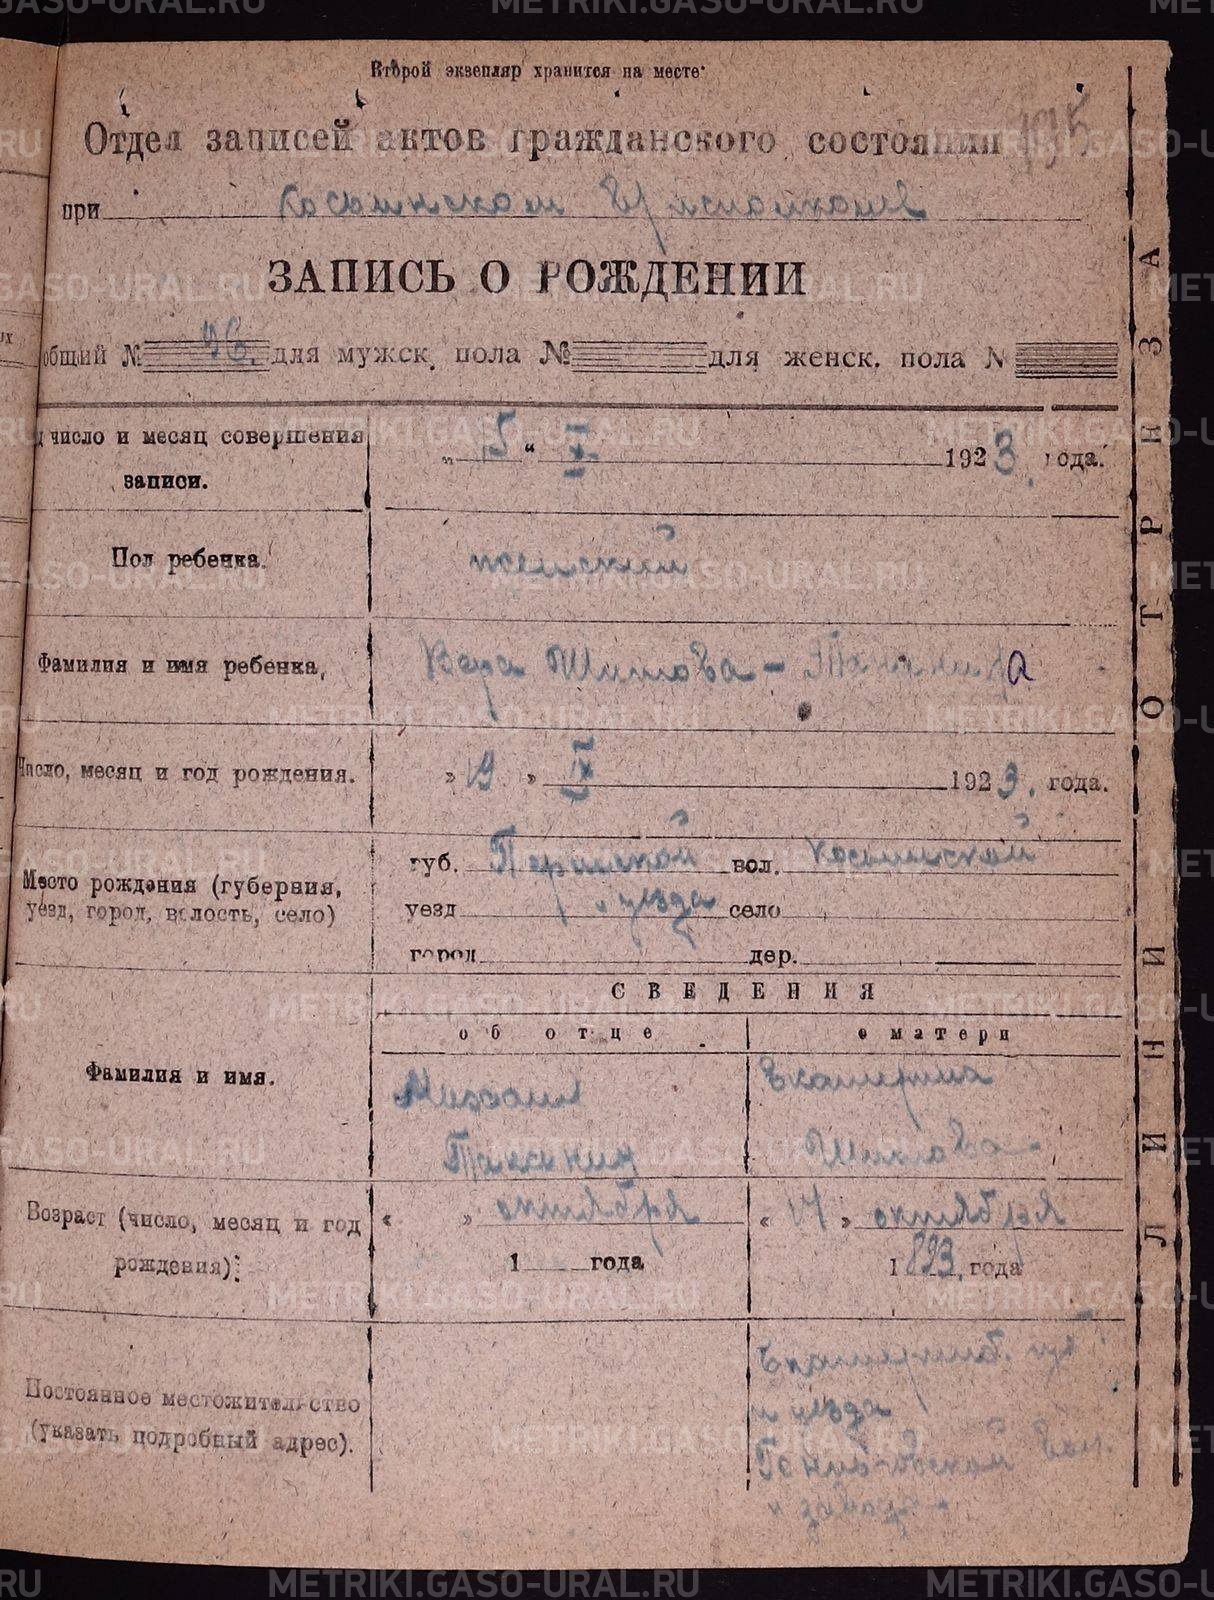 Второй экзепляр хранится на месте
195
Отдел записей актов гражданского состояния
при Косьинском Волисполкоме
ЗАПИСЬ О РОЖДЕНИИ
общий № 96. для мужск. пола № для женск. пола №
число и месяц совершения записи.
„ 5 “ X 1923. года.
Пол ребенка.
женский
Фамилия и имя ребенка,
Вера Шитова-
Число, месяц и год рождения.
» 19 » IX 1923. года.
Место рождения (губерния, уезд, город, волость, село)
губ. Пермской вол. Косьинской
уезд " уезда село
город дер.
СВЕДЕНИЯ
об отце
о матери
Фамилия и имя.
Михаил
Екатерина
Шитова-
Возраст (число, месяц и год рождения):
« » октября
« 17 » октября
1 года
1893. года
Постоянное местожительство (указать подробный адрес).
Екатеринб. губ.
и уезда
вол.
и завода-
ЛИНИЯ ОТРЕЗА
METRIKI.GASO-URAL.RU